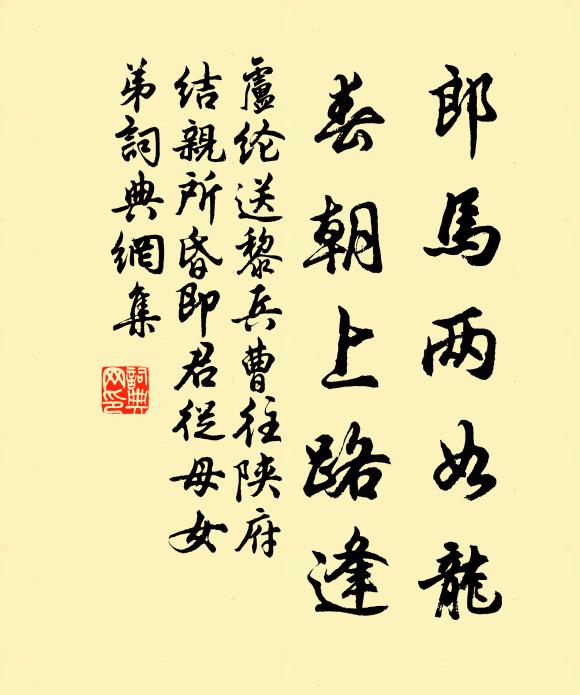 郎馬两如龍
春朝上路逢
盧纶送黎兵曹往陕府
結親所昏即君從母女
弟詞典網集
詞典
网印